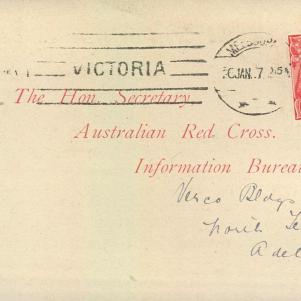 VICTORIA
JAN. 7
The Hon. Secretary
Australian Red Cross.
Information Bureau
Verco Bldgs
North Te
Adel